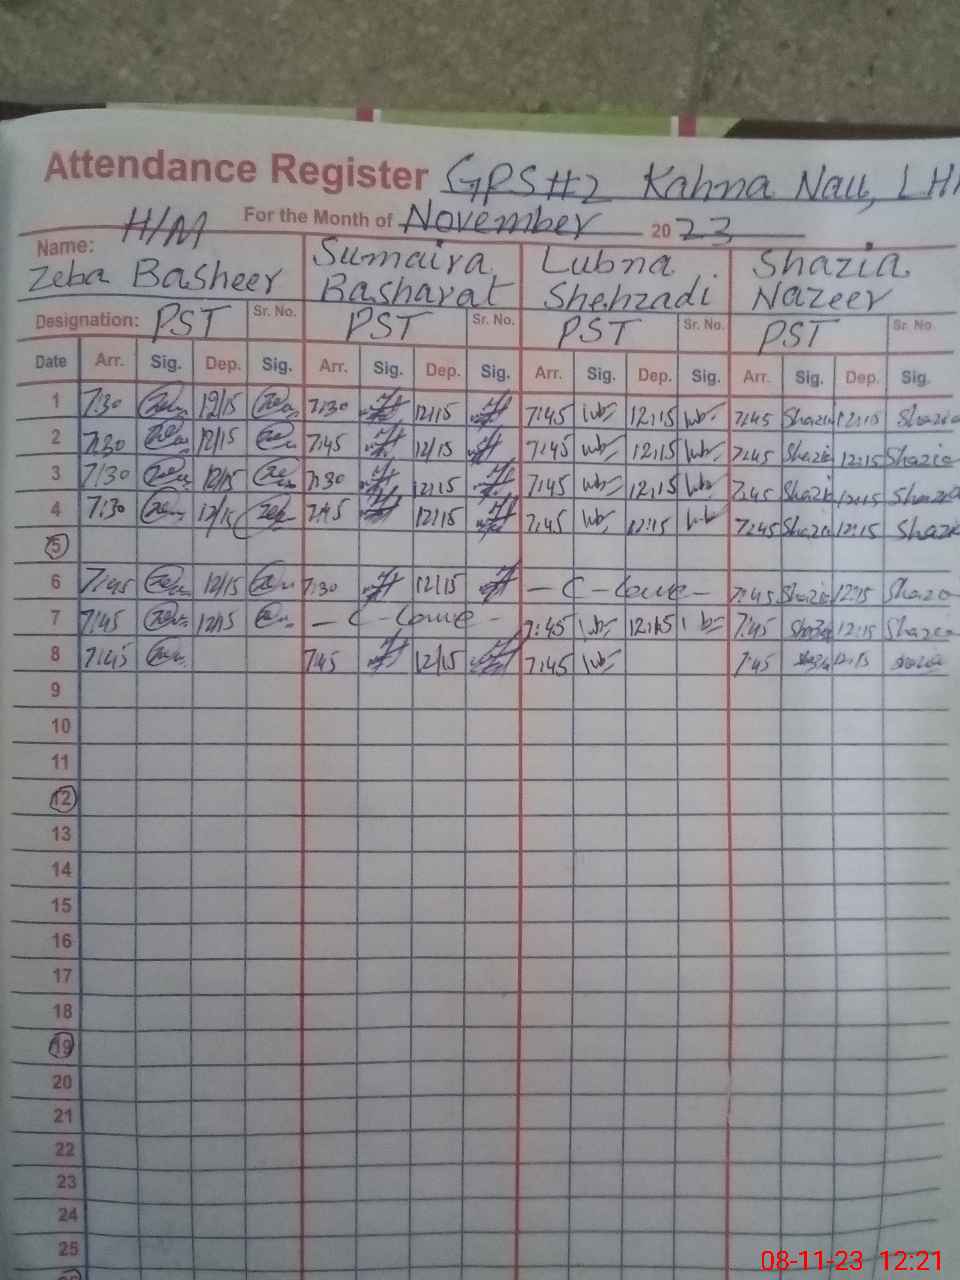 Attendance Register GPS#2 Kahna Nau, LH
H/M For the Month of November 2023
Name: Zeba Basheer Sumaira Basharat Lubna Shehzadi Shazia Nazeer
Designation: PST Sr. No. PST Sr. No. PST Sr. No. PST Sr. No.
Date Arr. Sig. Dep. Sig. Arr. Sig. Dep. Sig. Arr. Sig. Dep. Sig. Arr. Sig. Dep. Sig.
1 7:30 12/15 7:30 12:15 7:45 12:15 7:45 Shazia 12:15 Shazia
2 7:30 12/15 7:45 12/15 7:45 12:15 7:45 Shazia 12:15 Shazia
3 7/30 12/15 7:30 12:15 7:45 12:15 7:45 Shazia 12:15 Shazia
4 7:30 12/15 7:45 12:15 7:45 12:15 7:45 Shazia 12:15 Shazia
5
6 7:45 12/15 7:30 12/15 7:45 Shazia 12:15 Shazia
7 7:45 12/15 7:45 12:15 7:45 Shazia 12:15 Shazia
8 7:45 7:45 12/15 7:45 7:45 Shazia 12:15 Shazia
9
10
11
12
13
14
15
16
17
18
19
20
21
22
23
24
25
08-11-23 12:21